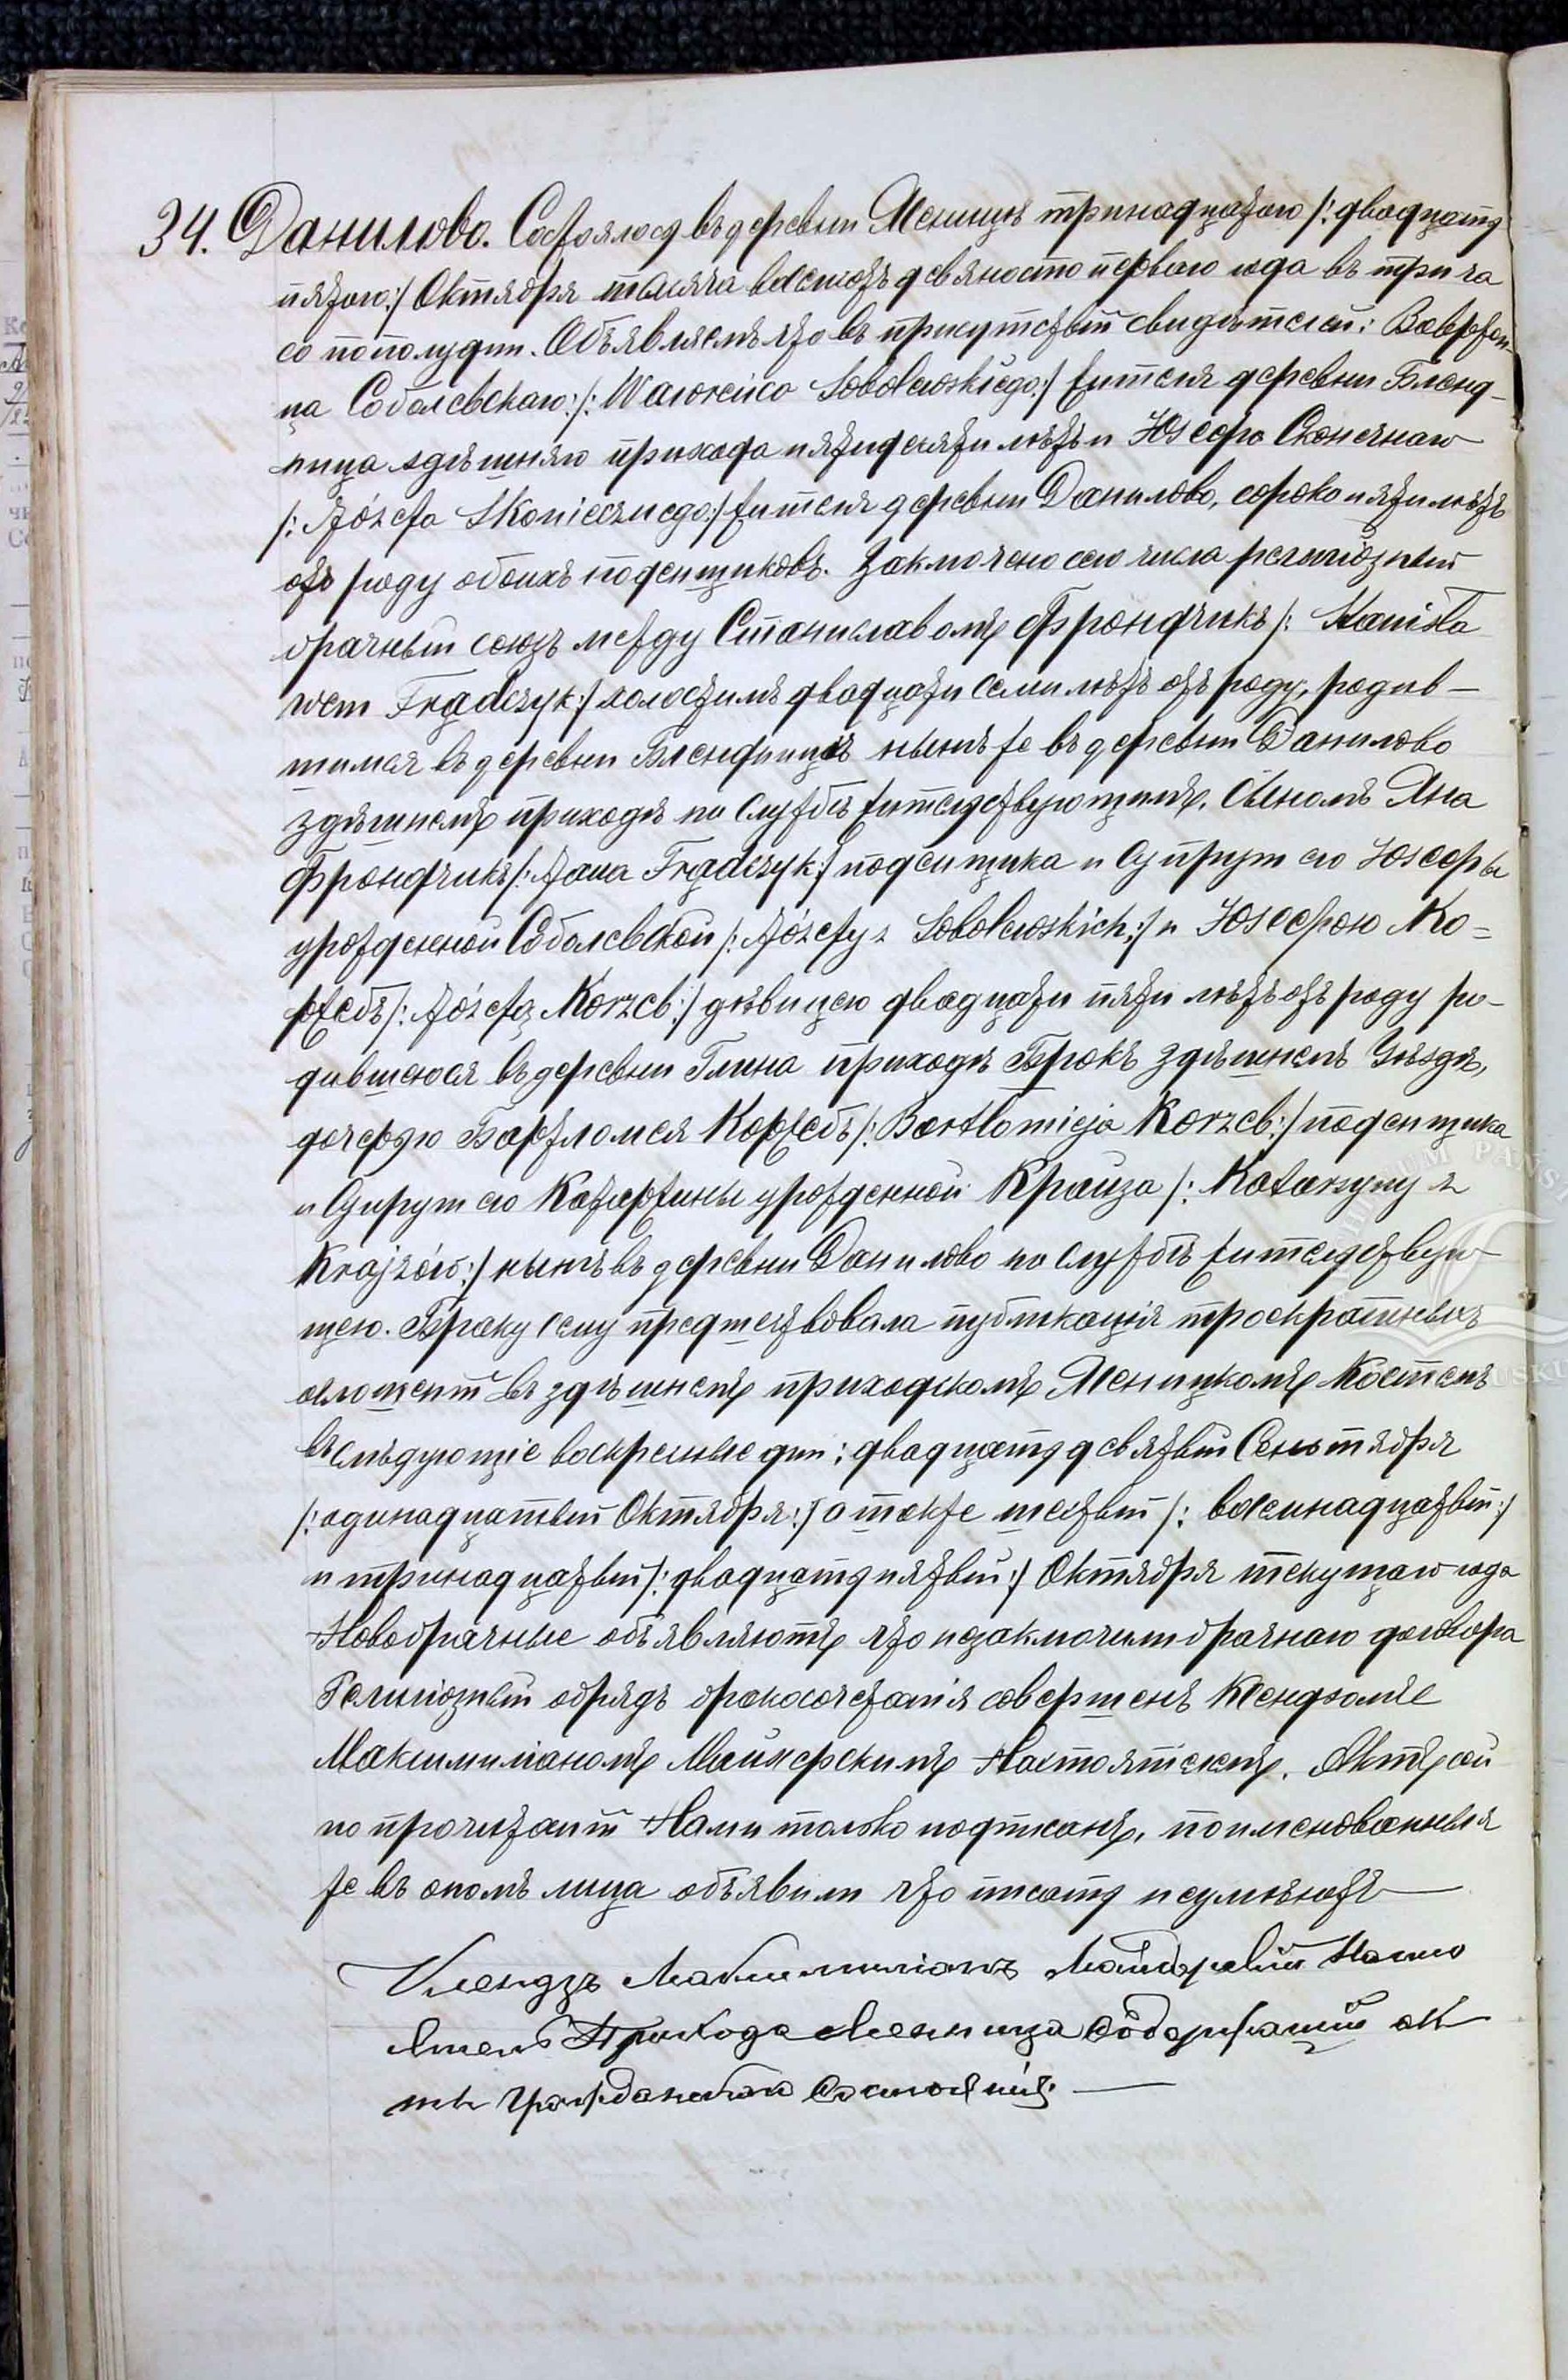 34. Данилово. Состоялось въ деревни Ясеницѣ тринадцатаго /: двадцать
пятаго:/ Октября тысяча восемьсотъ девяносто перваго года въ три ча
са пополудни. Объявляемъ что въ присутствіи свидѣтелей: Вавржен-
ца Соболевскаго:/: Wawrzeńca Sobolewskiego:/ жителя деревни Блэнд-
ница здѣшняго прихода пятидесяти лѣтъ и Юзефа Сконечнаго
/: Józefa Skoniecznego:/ жителя деревни Данилово, сорока пяти лѣтъ
отъ роду обоихъ поденщиковъ. Заключено сего числа религіозный
брачный союзъ между Станиславомъ Фрондчикъ /: Stanisła
wem Frądczyk:/ холостымъ двадцати семи лѣтъ отъ роду, родив-
шимся въ деревни Блендницѣ нынѣ же въ деревни Данилово
здѣшнемъ приходѣ на службѣ жительствующимъ, сыномъ Яна
Фрондчикъ /: Jana Frądczyk:/ поденщика и Супруги его Юзефы
урожденной Соболевской /: Józefy z Sobolewskich:/ и Юзефою Ко=
ржебъ /: Józefą Korzeb:/ дѣвицею двадцати пяти лѣтъ отъ роду ро-
дившеюся въ деревни Глина приходѣ Брокъ здѣшнемъ Уѣздѣ,
дочерью Бартломея Коржебъ /: Bartłomieja Korzeb:/ поденщика
и Супруги его Катаржины урожденной Крайза /: Katarzyny z
Krajzów:/ нынѣ въ деревни Данилово на службѣ жительствую-
щею. Браку сему предшествовала публикація троекратныхъ
оглашеній въ здѣшнемъ приходскомъ Ясеницкомъ Костелѣ
въ слѣдующіе воскресные дни: двадцать девятый Сентября
/: одинадцатый Октября:/ а также шестый /: восемнадцатый:/
и тринадцатый /: двадцать пятый:/ Октября текущаго года
Новобрачные объявляютъ что незаключили брачнаго договора
Религіозный обрядъ бракосочетанія совершенъ Ксендзомъ
Максимиліаномъ Майнерскимъ Настоятелемъ. Актъ сей
по прочитаніи Нами только подписанъ, поименованныя
же въ ономъ лица объявили что писать неумѣютъ
Ксендзъ Максимиліанъ Настo
ятель Прихода Ясеница Содержащій ак
ты Гражданскаго Состоянія.